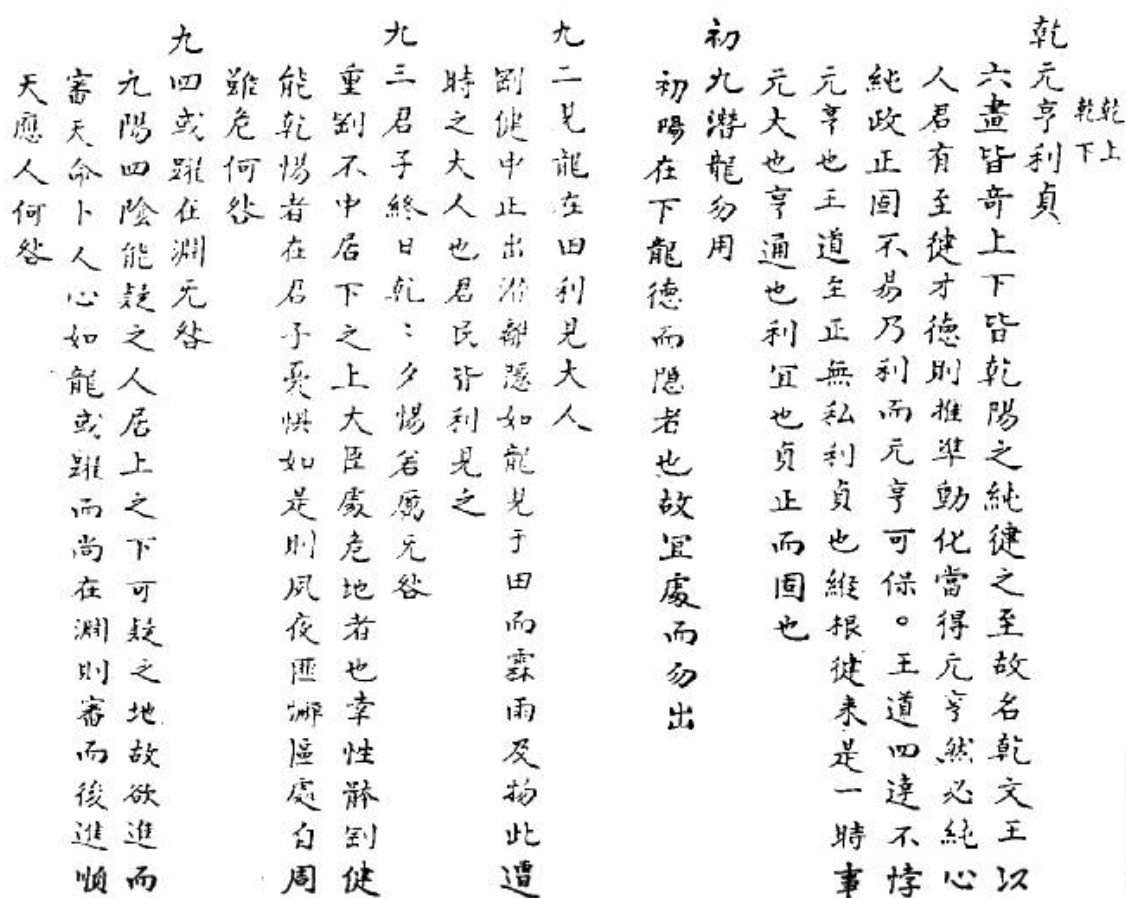 乾元亨利貞
乾上
乾下
六畫皆奇上下皆乾陽之純健之至故名乾文王以
人君有至健才德則推準動化當得元亨然必純心
純政正固不易乃利而元亨可保。王道四達不悖
元亨也王道至正無私利貞也縱根健來是一時事
元大也亨通也利宜也貞正而固也
初九潛龍勿用
初陽在下龍德而隱者也故宜處而勿出
九二見龍在田利見大人
剛健中正出潛離隱如龍見于田而霖雨及物此遭
時之大人也君民皆利見之
九三君子終日乾〻夕惕若厲无咎
重剛不中居下之上大臣處危地者也幸性體剛健
能乾惕者在君子憂惧如是則夙夜匪懈區處自周
雖危何咎
九四或躍在淵无咎
九陽四陰能疑之人居上之下可疑之地故欲進而
審天命卜人心如龍或躍而尚在淵則審而後進順
天應人何咎